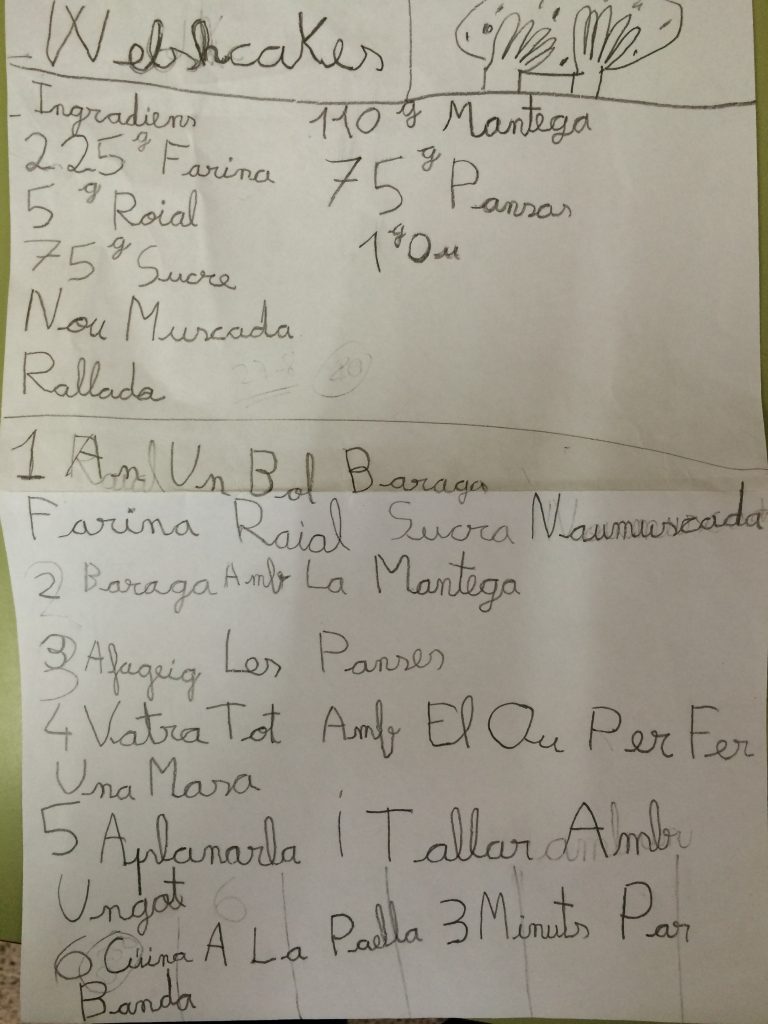 Welshcakes
Ingradiens
225g Farina
5g Roial
75g Sucre
Nou Muscada
Rallada
110g Mantega
75g Pansas
1g Ou
1 An Un Bol Baraga
Farina Raial Sucra Naumuscada
2 Baraga Amb La Mantega
3 Afageig Les Panses
4 Vatra Tot Amb El Ou Per Fer
Una Masa
5 Aplanarla i Tallar Amb
Ungot
6 Cuina A La Paella 3 Minuts Par
Banda